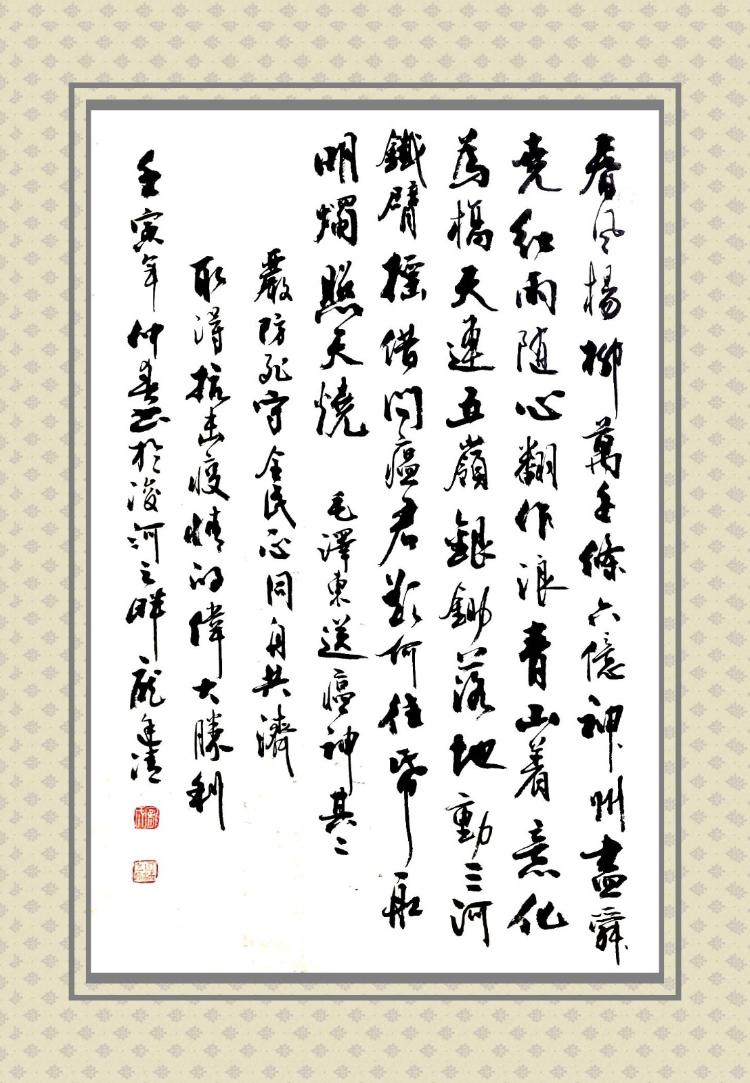 春风楊柳萬千條六億神州盡舜
堯红雨随心翻作浪青山着意化
為橋天連五嶺銀鋤落地動三河
鐵臂摇借问瘟君欲何往帋船
明燭照天燒 毛澤東送瘟神其二
嚴防死守全民同舟共濟
取得抗击疫情的偉大勝利
壬寅年仲春书於浚河之畔 龐清